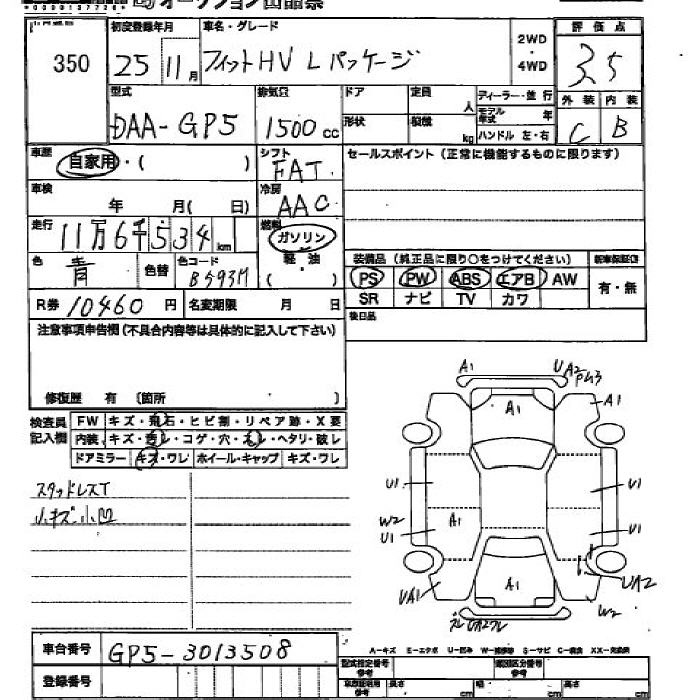 オークション出品票
350
初度登録年月
25 11月
車名・グレード
フィットHV Lパッケージ
2WD
・
4WD
評価点
3.5
外装 内装
C B
型式
DAA-GP5
排気量
1500cc
ドア 定員 人
形状 積載 kg
ディーラー・並行
モデル年式 年
ハンドル 左・右
車歴
自家用・( )
シフト
FAT
セールスポイント (正常に機能するものに限ります)
車検
年 月( 日)
冷房
AAC
走行
11万6千534km
燃料
ガソリン
軽・油
( )
色
青
色替
色コード
B593M
装備品 (純正品に限り○をつけてください)
PS PW ABS エアB AW
SR ナビ TV カワ
新車保証書
有・無
R券 10460円
名変期限 月 日
後日品
注意事項申告欄(不具合内容等は具体的に記入して下さい)
修復歴 有 〔箇所 〕
検査員記入欄
FW キズ・飛石・ヒビ割・リペア跡・X要
内装 キズ・汚レ・コゲ・穴・スレ・ヘタリ・破レ
ドアミラー キズ・ワレ ホイール・キャップ キズ・ワレ
スタッドレスT
小キズ小凹
A1
A1
A1
U1
U1
W2
U1
A1
U1
A1
UA1
UA2
W2
車台番号 GP5-3013508
登録番号
A-キズ E-エクボ U-凹み W-補修跡 S-サビ C-腐食 XX-交換済
型式指定番号
参考
類別区分番号
参考
長さ cm
幅 cm
高さ cm